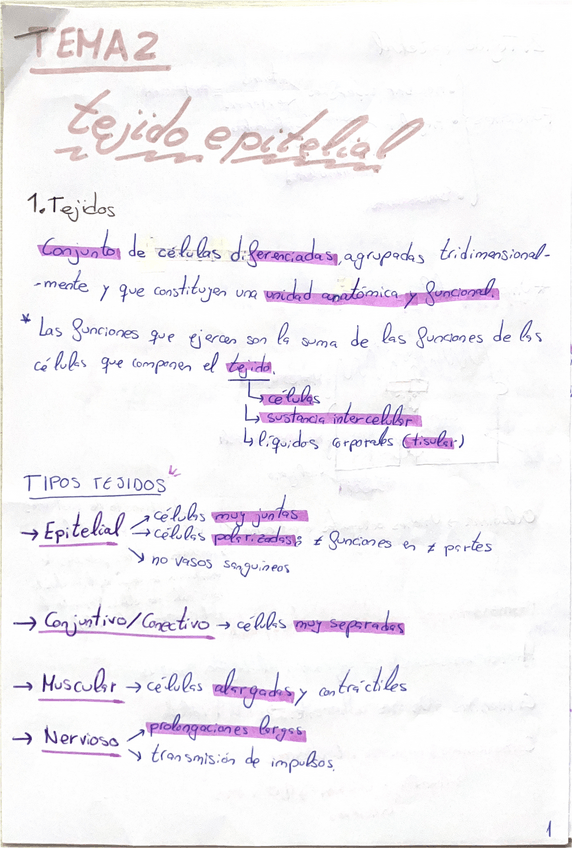 TEMA 2
tejido epitelial
1. Tejidos
Conjunto de células diferenciadas, agrupadas tridimensional-
-mente y que constituyen una unidad anatómica y funcional.
* Las funciones que ejercen son la suma de las funciones de las
células que componen el tejido.
↳ células
↳ sustancia intercelular
↳ líquidos corporales (tisular)
TIPOS TEJIDOS
→ Epitelial ↗ células muy juntas
→ células polarizadas; ≠ funciones en ≠ partes
↘ no vasos sanguineos
→ Conjuntivo/Conectivo → células muy separadas
→ Muscular → células alargadas y contráctiles
→ Nervioso ↗ prolongaciones largas
↘ transmisión de impulsos.
1